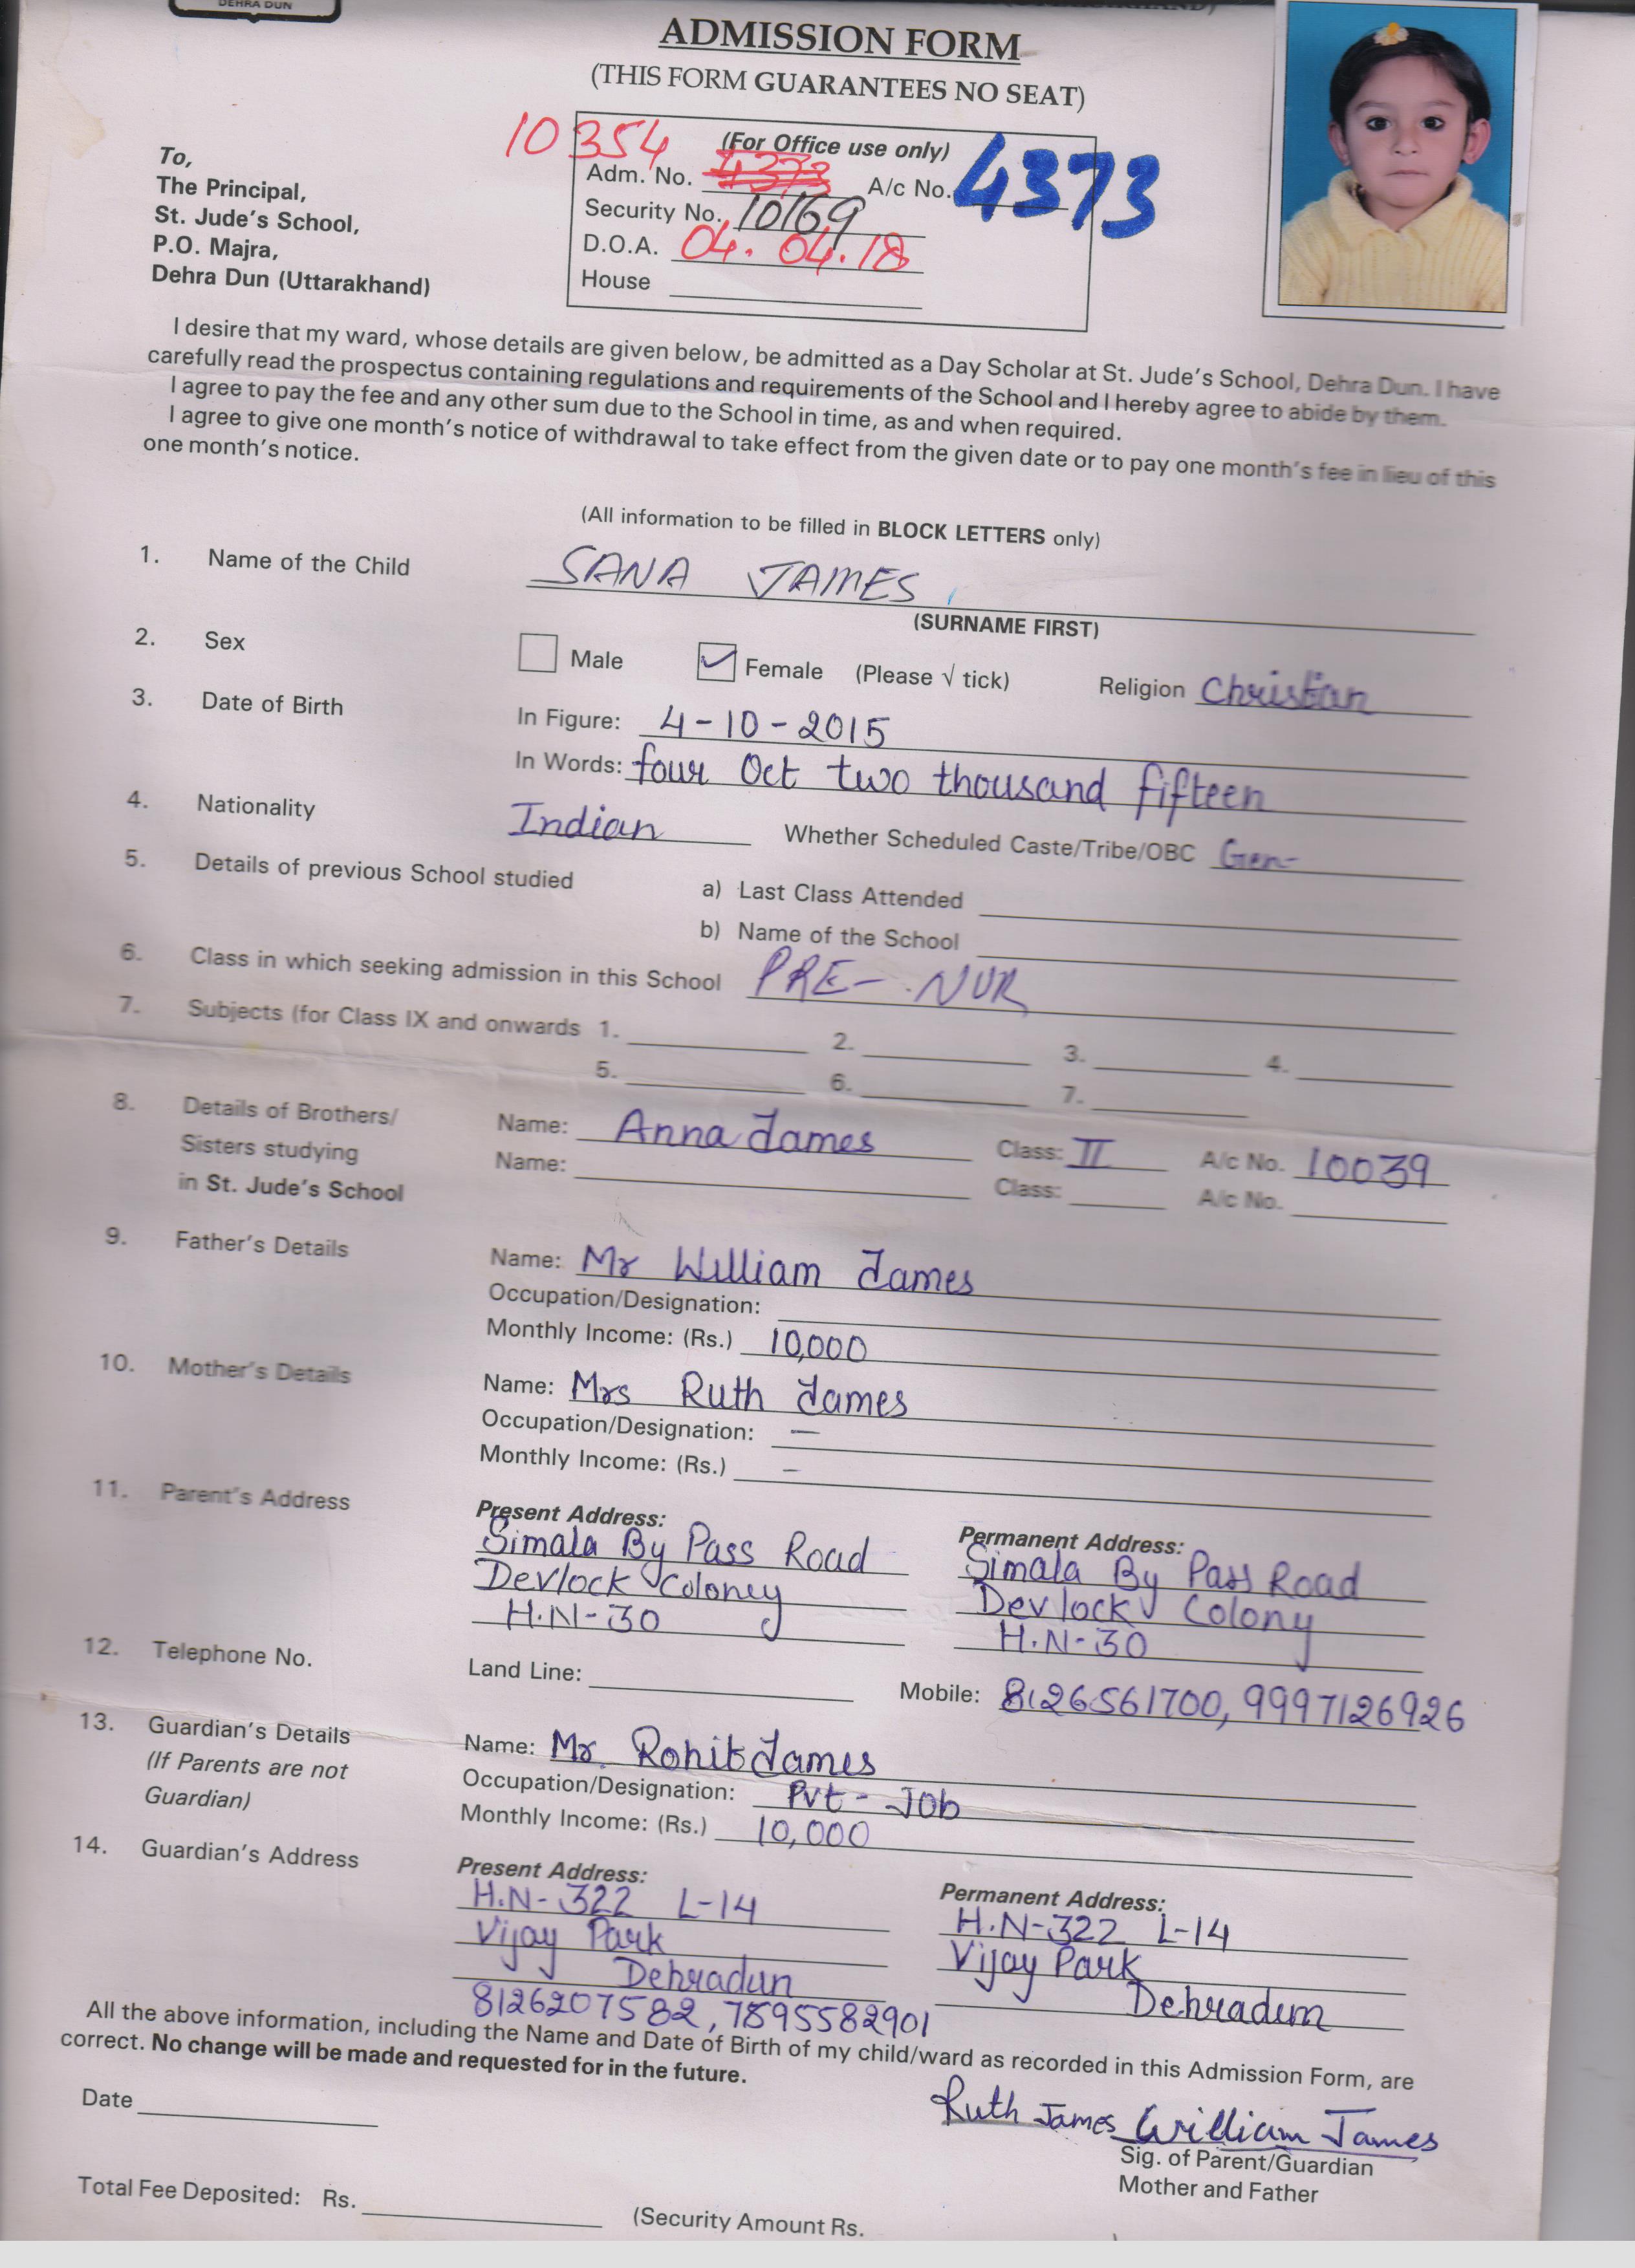 DEHRA DUN
ADMISSION FORM
(THIS FORM GUARANTEES NO SEAT)
10354
(For Office use only)
To,
The Principal,
St. Jude's School,
P.O. Majra,
Dehra Dun (Uttarakhand)
Adm. No. 4373 A/c No. 4373
Security No. 10169
D.O.A. 04.04.18
House
I desire that my ward, whose details are given below, be admitted as a Day Scholar at St. Jude's School, Dehra Dun. I have
carefully read the prospectus containing regulations and requirements of the School and I hereby agree to abide by them.
I agree to pay the fee and any other sum due to the School in time, as and when required.
I agree to give one month's notice of withdrawal to take effect from the given date or to pay one month's fee in lieu of this
one month's notice.
(All information to be filled in BLOCK LETTERS only)
1. Name of the Child SANA JAMES
(SURNAME FIRST)
2. Sex Male Female (Please √ tick) Religion Christian
3. Date of Birth In Figure: 4-10-2015
In Words: four Oct two thousand fifteen
4. Nationality Indian Whether Scheduled Caste/Tribe/OBC Gen-
5. Details of previous School studied a) Last Class Attended
b) Name of the School
6. Class in which seeking admission in this School PRE-NUR
7. Subjects (for Class IX and onwards 1. 2. 3. 4.
5. 6. 7.
8. Details of Brothers/ Name: Anna James Class: II A/c No. 10039
Sisters studying Name: Class: A/c No.
in St. Jude's School
9. Father's Details Name: Mr William James
Occupation/Designation:
Monthly Income: (Rs.) 10,000
10. Mother's Details Name: Mrs Ruth James
Occupation/Designation: —
Monthly Income: (Rs.) –
11. Parent's Address Present Address: Permanent Address:
Simala By Pass Road Simala By Pass Road
Devlock Coloney Devlock Colony
H.N-30 H.N-30
12. Telephone No. Land Line: Mobile: 8126561700, 9997126926
13. Guardian's Details Name: Mr. Rohit James
(If Parents are not Occupation/Designation: Pvt-Job
Guardian) Monthly Income: (Rs.) 10,000
14. Guardian's Address Present Address: Permanent Address:
H.N-322 L-14 H.N-322 L-14
Vijay Park Vijay Park
Dehradun Dehradun
8126207582, 7895582901
All the above information, including the Name and Date of Birth of my child/ward as recorded in this Admission Form, are
correct. No change will be made and requested for in the future.
Date
Ruth James William James
Sig. of Parent/Guardian
Mother and Father
Total Fee Deposited: Rs. (Security Amount Rs.